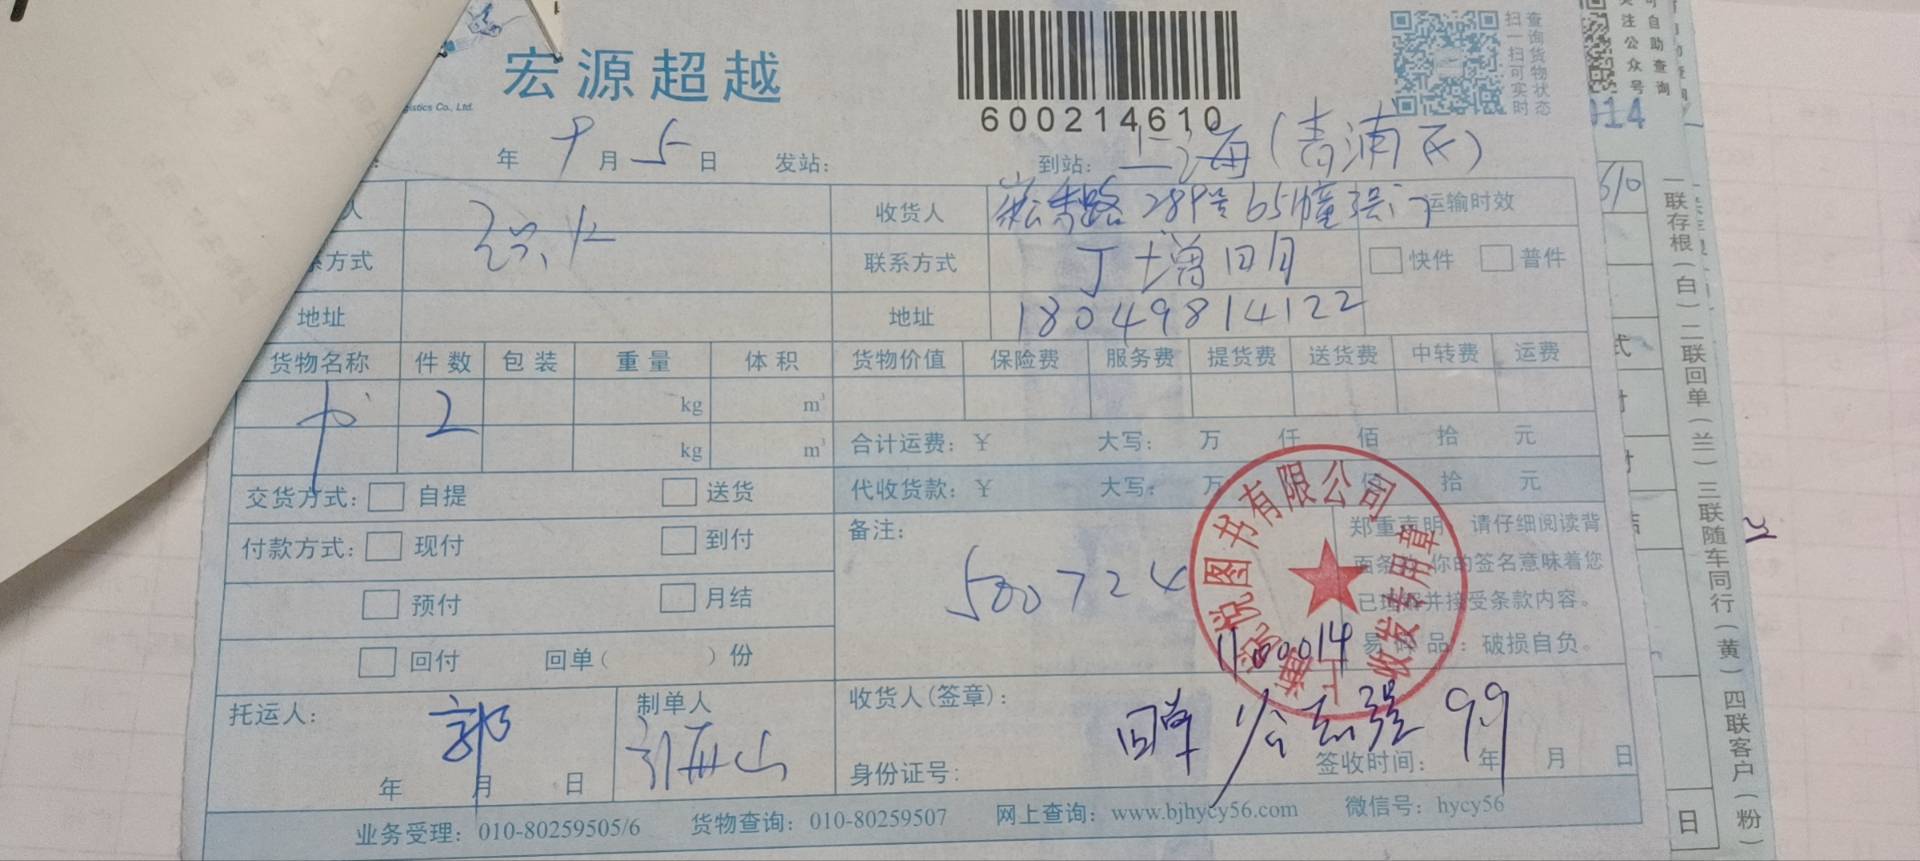 宏源超越
istics Co., Ltd.
600214610
查询货物状态
扫一扫可实时
年 9月5日 发站: 到站: 上海(青浦区)
人 收货人 崧泽路289号65幢 运输时效
系方式 联系方式 丁增明 快件 普件
地址 地址 18049814122
货物名称 件数 包装 重量 体积 货物价值 保险费 服务费 提货费 送货费 中转费 运费
书 2 kg m³
kg m³ 合计运费: ¥ 大写: 万 仟 佰 拾 元
交货方式: 自提 送货 代收货款: ¥ 大写: 万 拾 元
付款方式: 现付 到付 备注: 郑重声明: 请仔细阅读背
面条 你的签名意味着您
预付 月结 500724 已 并接受条款内容。
1100014 易 品: 破损自负。
回付 回单( )份
图书有限公司
收发专用章
托运人: 郭 制单人 收货人(签章): 回单 徐志强 9.9
年 月 日 身份证号: 签收时间: 年 月 日
业务受理: 010-80259505/6 货物查询: 010-80259507 网上查询: www.bjhycy56.com 微信号: hycy56
一联存根(白)二联回单(兰)三联随车同行(黄)四联客户(粉)
注公众号
可自助查询
014
610
式
日